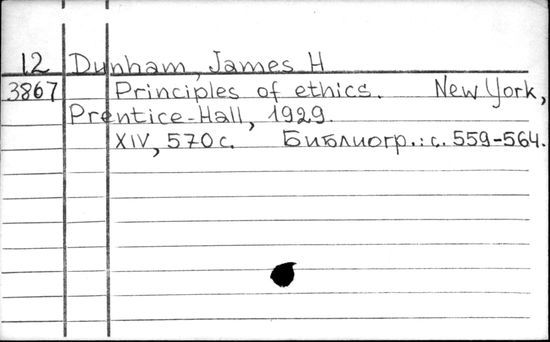 12 Dunham, James H
3867 Principles of ethics. New York,
Prentice-Hall, 1929.
XIV, 570 с. Библиогр.: с. 559-564.